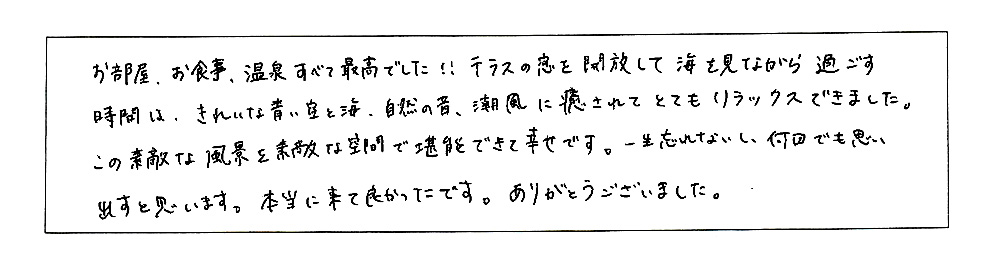 お部屋、お食事、温泉すべて最高でした!! テラスの窓を開放して海を見ながら過ごす
時間は、きれいな青い空と海、自然の音、潮風に癒されてとてもリラックスできました。
この素敵な風景を素敵な空間で堪能できて幸せです。一生忘れないし、何回でも思い
出すと思います。本当に来て良かったです。ありがとうございました。